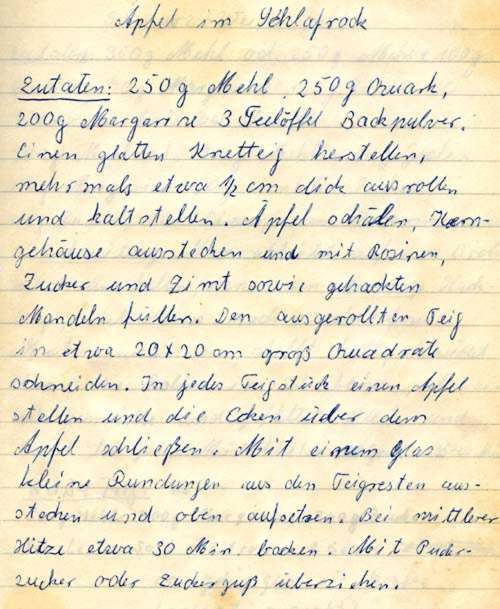 Apfel im Schlafrock
Zutaten: 250g Mehl, 250g Quark,
200g Margarine 3 Teelöffel Backpulver.
Einen glatten Knetteig herstellen,
mehrmals etwa 1/2 cm dick ausrollen
und kaltstellen. Äpfel schälen, Kern-
gehäuse ausstechen und mit Rosinen,
Zucker und Zimt sowie gehackten
Mandeln füllen. Den ausgerollten Teig
in etwa 20 x 20 cm groß Quadrate
schneiden. In jedes Teigstück einen Apfel
stellen und die Ecken über dem
Apfel schließen. Mit einem Glas
kleine Rundungen aus den Teigresten aus-
stechen und oben aufsetzen. Bei mittlerer
Hitze etwa 30 Min backen. Mit Puder-
zucker oder Zuderguß überziehen.